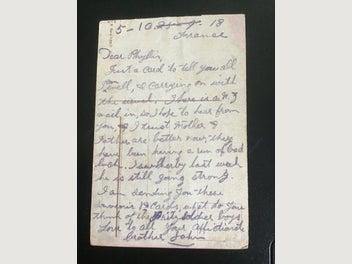 5-10 18
France
Dear Phyllis,
Just a card to tell you all
I'm well, & carrying on with
the usual. There is a N.Z
mail in, so I hope to hear from
you, & I trust Mother &
Father are better now, they
have been having a run of bad
luck. I saw last week
he is still going strong
I am sending you these
Cards, what do you
think of the soldier boys
Love to all your affectionate
brother John